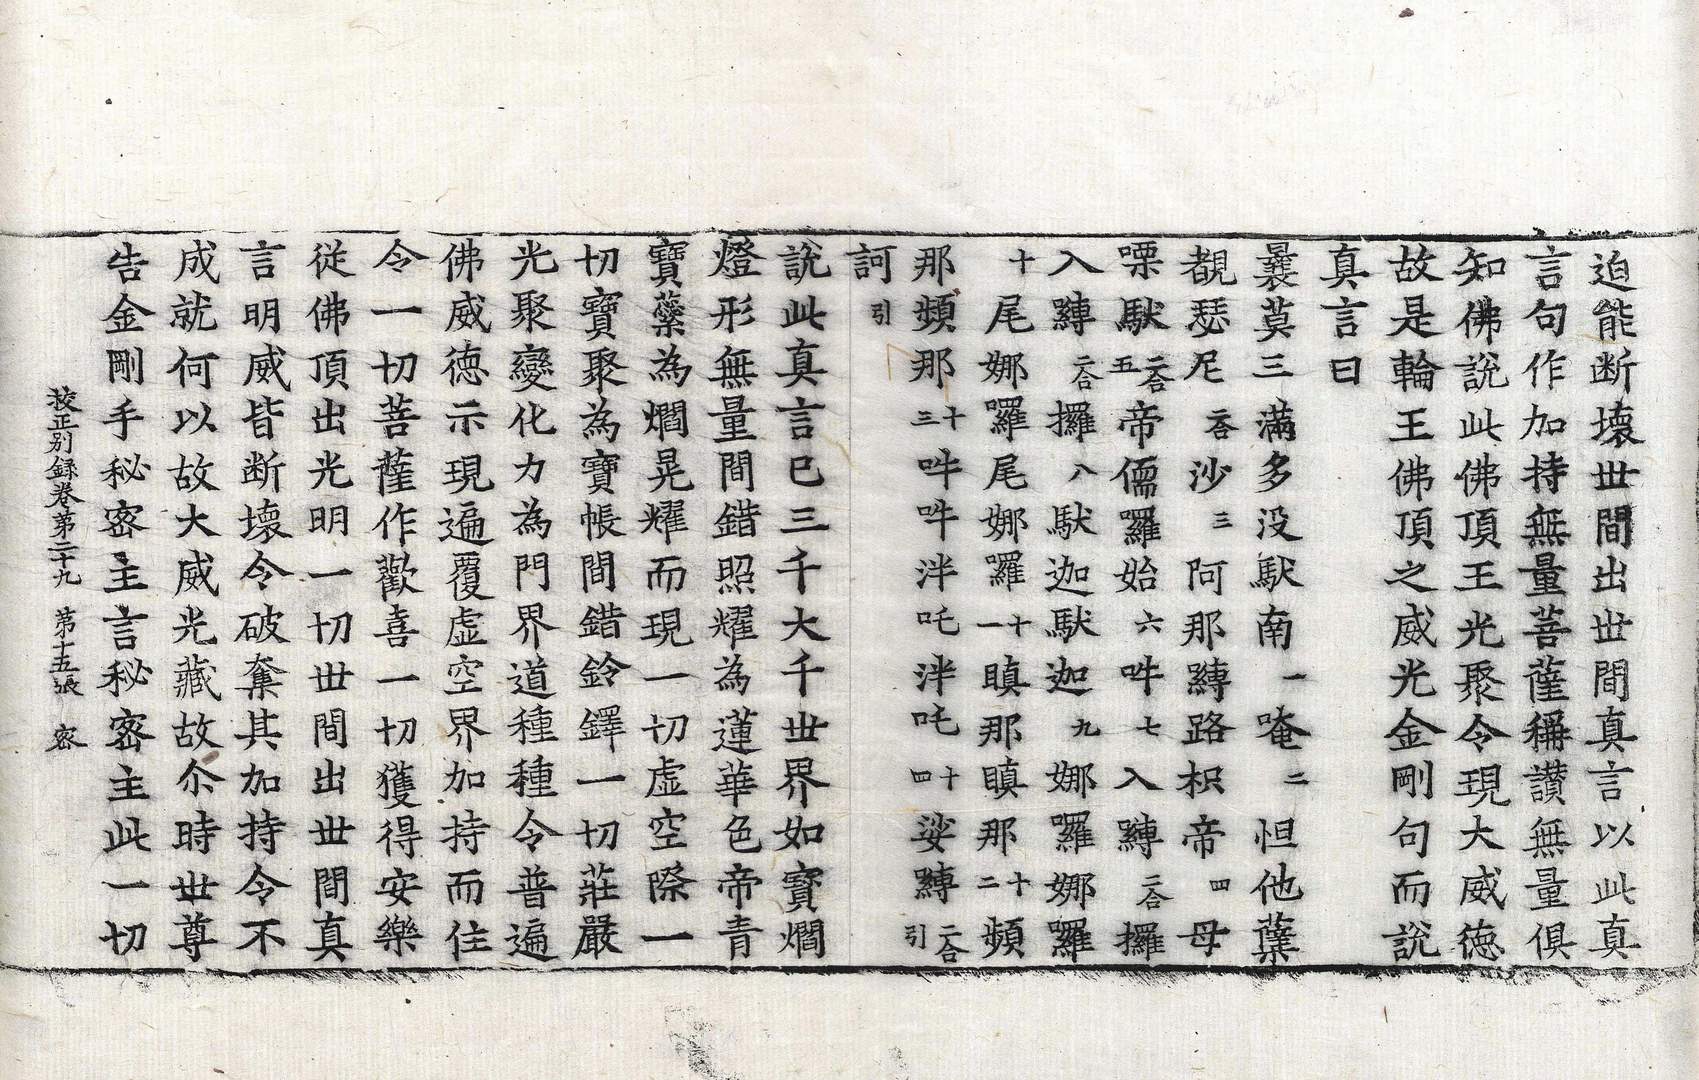 迫能断壞世間出世間真言以此真
言句作加持無量菩薩稱讃無量俱
知佛說此佛頂王光聚令現大威德
故是輪王佛頂之威光金剛句而說
真言曰
曩莫三滿多没馱南一唵二怛他蘖
覩瑟尼二合沙三阿那嚩路枳帝四母
㗚馱二合五帝儒囉始六吽七入嚩二合攞
入嚩二合攞八馱迦馱迦九娜囉娜囉
十尾娜囉尾娜囉十一瞋那瞋那十二頻
那頻那十三吽吽泮吒泮吒十四娑嚩二合引
訶引
說此真言已三千大千世界如寶爓
燈形無量間錯照耀為蓮華色帝青
寶蘂為爓晃耀而現一切虛空際一
切寶聚為寶帳間錯鈴鐸一切莊嚴
光聚變化力為門界道種種令普遍
佛威德示現遍覆虛空界加持而住
令一切菩薩作歡喜一切獲得安樂
從佛頂出光明一切世間出世間真
言明威皆断壞令破奪其加持令不
成就何以故大威光藏故尒時世尊
告金剛手秘密主言秘密主此一切
校正别録卷第二十九 第十五張 密